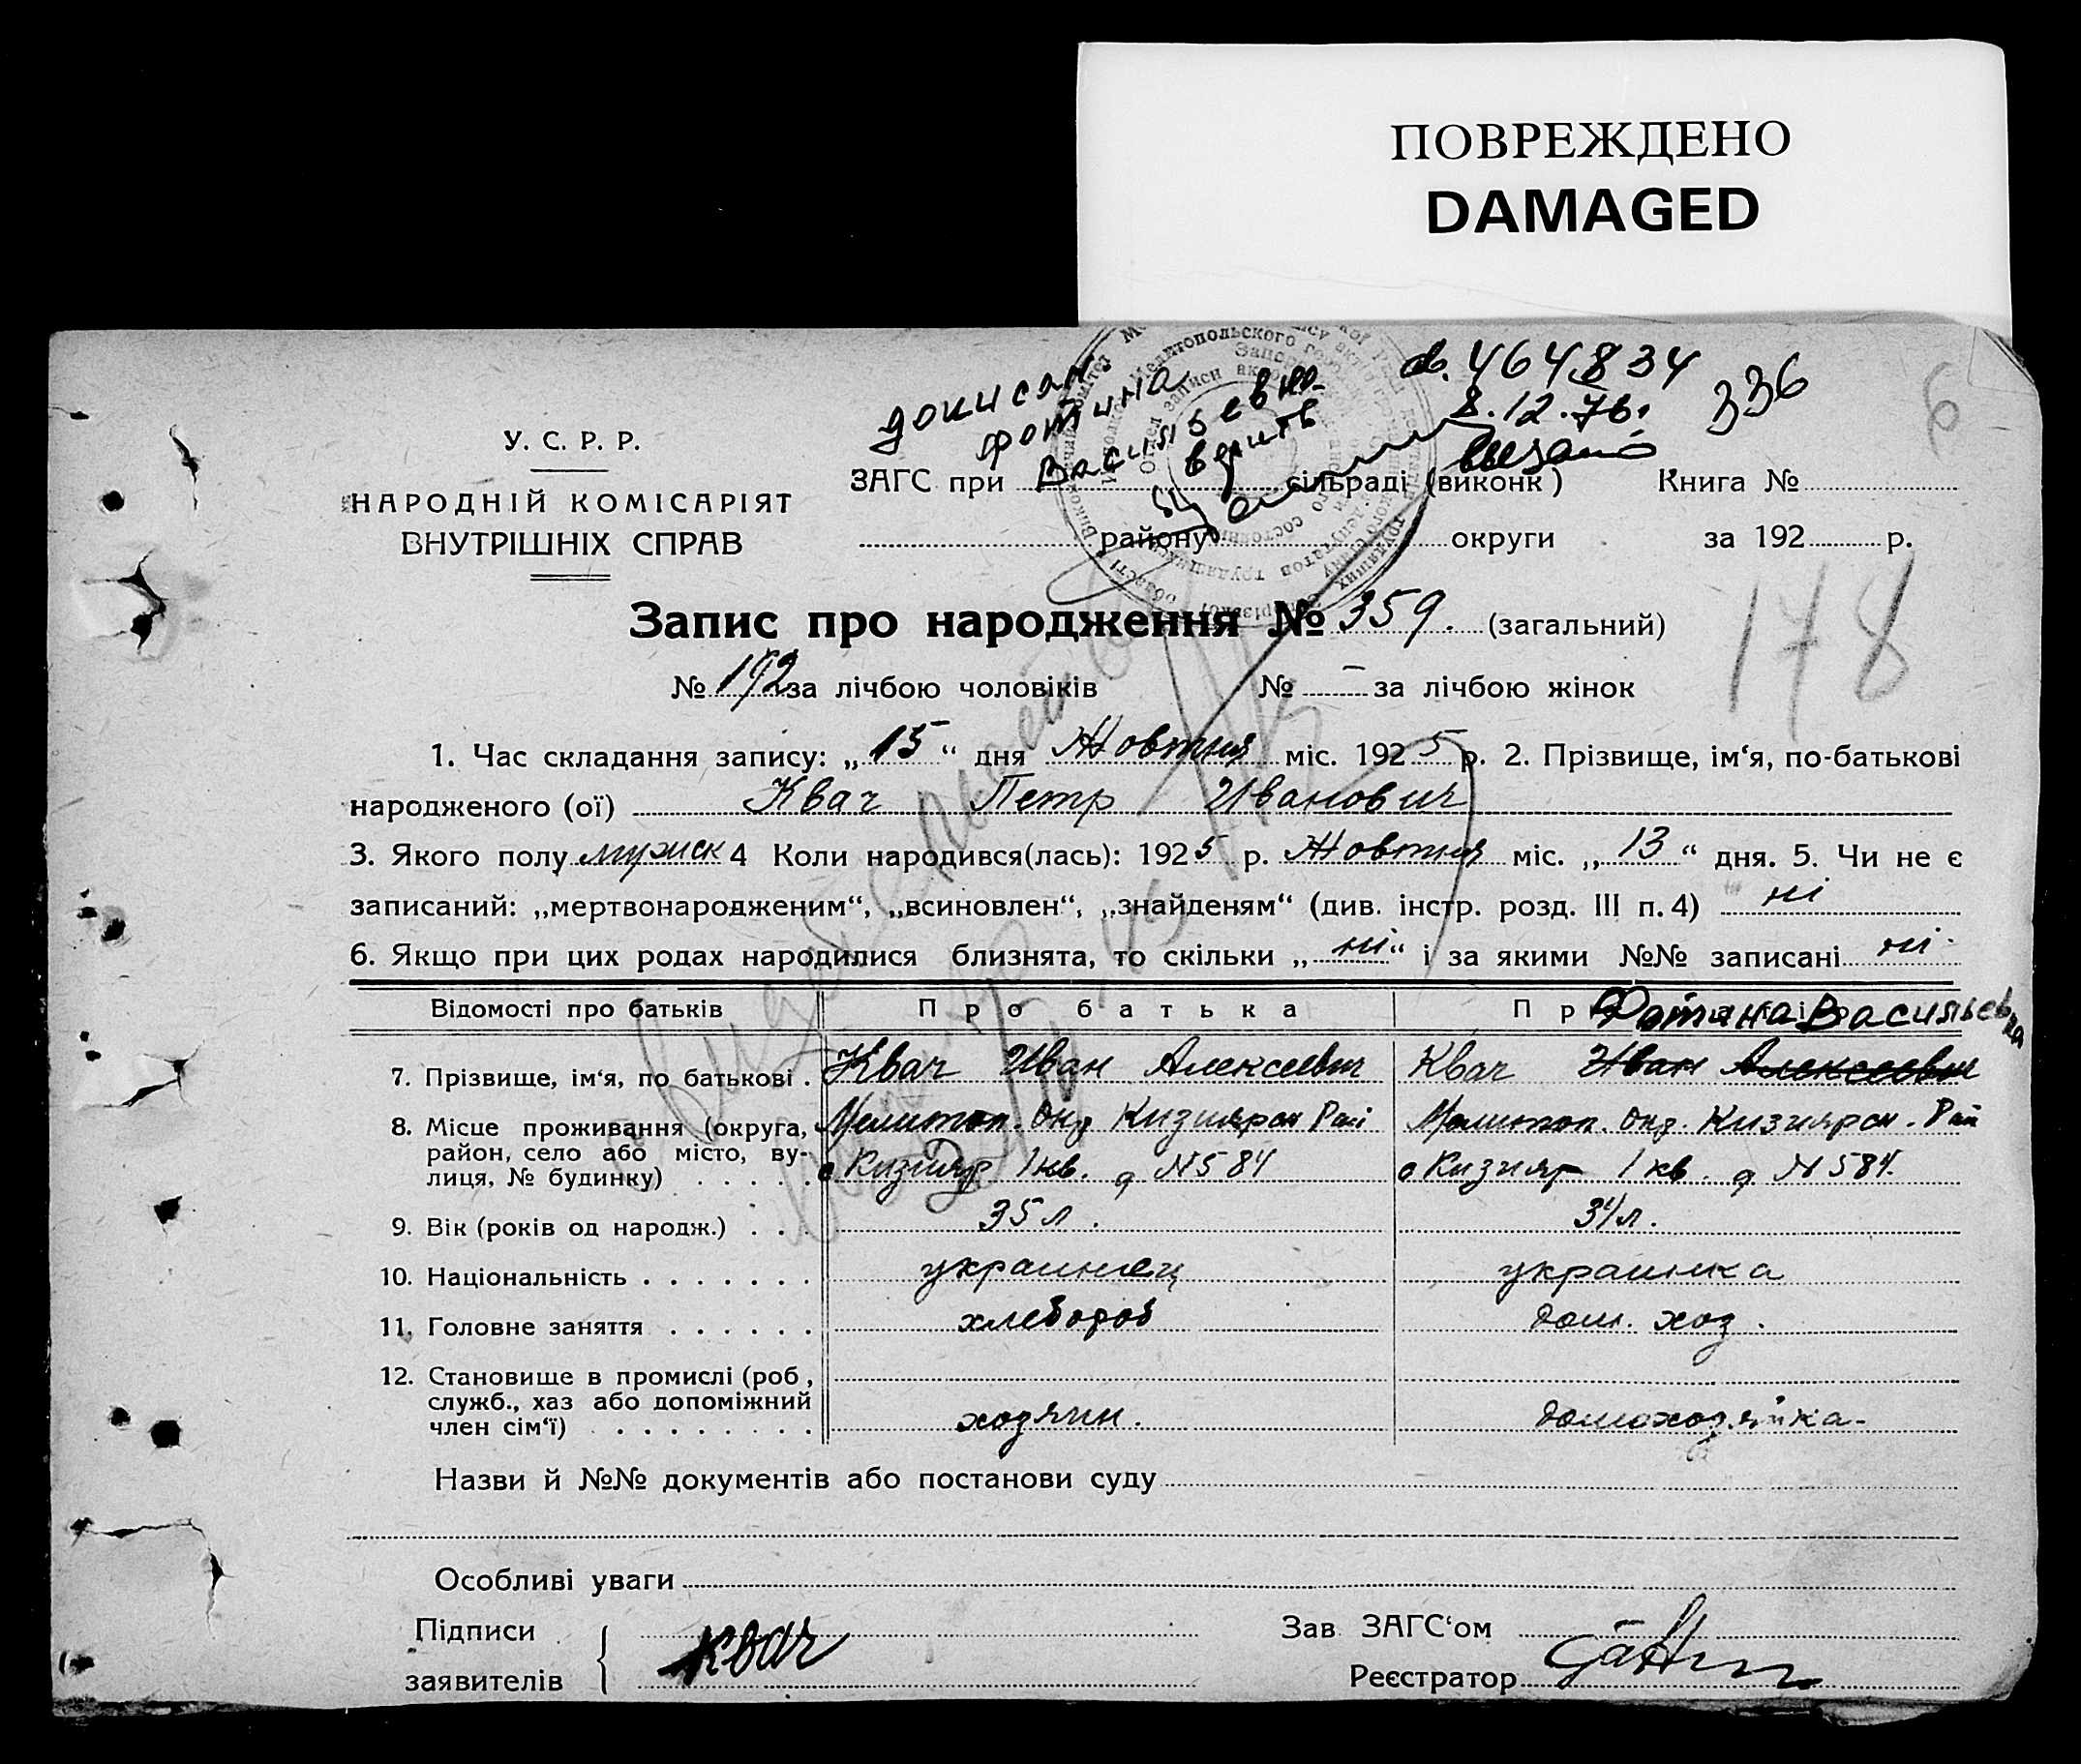 ПОВРЕЖДЕНО
DAMAGED
дописан
фотина
Васильевно
верить
464834
8.12.76.
336
6
У. С. Р. Р.
НАРОДНІЙ КОМІСАРІЯТ
ВНУТРІШНІХ СПРАВ
ЗАГС при сільраді (виконк) Книга №
району округи за 192 р.
Запис про народження № 359. (загальний)
178
№ 192 за лічбою чоловіків № – за лічбою жінок
1. Час складання запису: „15“ дня Жовтня міс. 1925 р. 2. Прізвище, ім‘я, по-батькові
народженого (ої) Квач Петр Иванович
3. Якого полу мужск 4 Коли народився(лась): 1925 р. Жовтня міс. „13“ дня. 5. Чи не є
записаний: „мертвонародженим“, „всиновлен“, „знайденям“ (див. інстр. розд. III п. 4) ні
6. Якщо при цих родах народилися близнята, то скільки „ні“ і за якими №№ записані ні
Відомості про батьків Про батька Пр
Фотина Васильевна
7. Прізвище, ім‘я, по батькові . Квач Иван Алексеевич Квач Иван Алексеевич
8. Місце проживання (округа, Мелитоп. Окр Кизиярск Рай Мелитоп. Окр. Кизиярск. Рай
район, село або місто, ву-
лиця, № будинку) . . . . . с Кизияр 1 кв. д N584 с Кизияр 1 кв. д N584.
9. Вік (років од народж.) . . . 35 л. 34 л.
10. Національність . . . . . . . украинец украинка
11. Головне заняття . . . . . . хлебороб дом. хоз.
12. Становище в промислі (роб,
служб., хаз або допоміжний
член сім‘ї) . . . . . . . . . хозяин. домохозяйка-
Назви й №№ документів або постанови суду
Особливі уваги
Підписи Зав ЗАГС‘ом
заявителів Квач Реєстратор